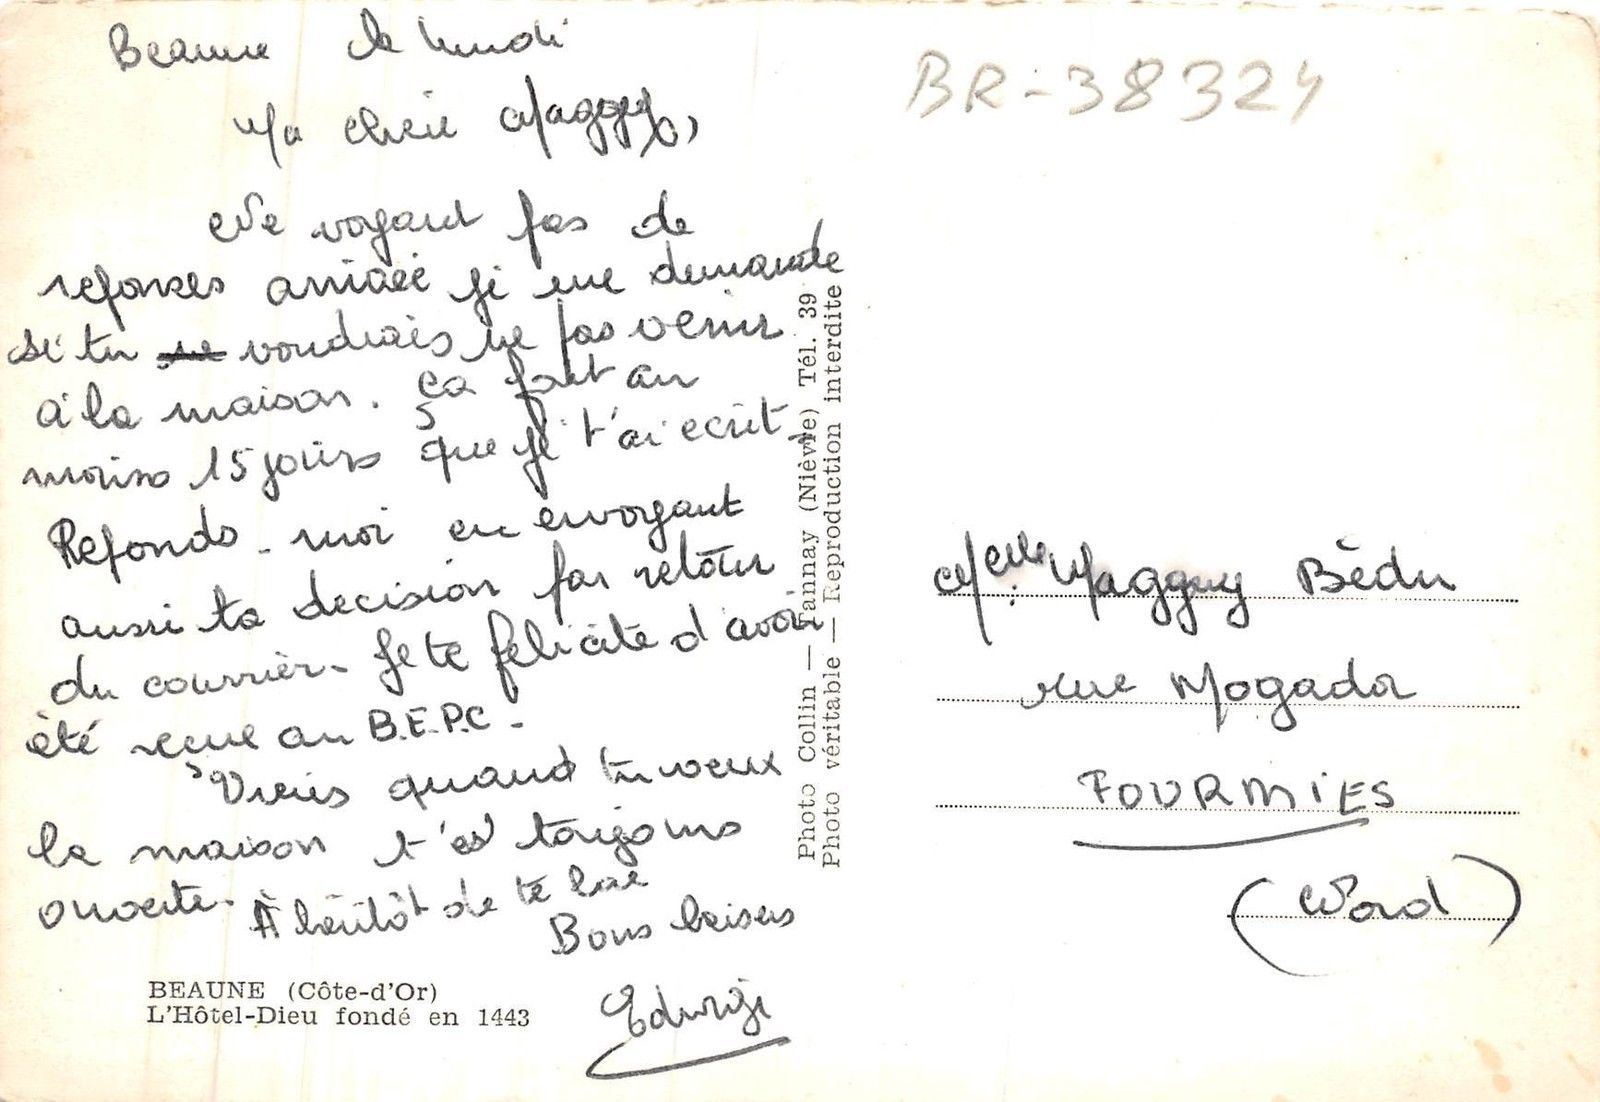 Beaune le lundi
Ma chère Magguy,
Ne voyant pas de
reponses arrivée je me demande
si tu ne voudrais ne pas venir
à la maison. ça fait au
moins 15 jours que je t'ai ecrit
Reponds-moi en envoyant
aussi ta decision par retour
du courrier. Je te félicite d'avoir
été recue au B.E.P.C.
Viens quand tu veux
la maison t'est toujours
ouverte. A bientôt de te lire
Bons baisers
Edwige
BEAUNE (Côte-d'Or)
L'Hôtel-Dieu fondé en 1443
Photo Collin — Tannay (Nièvre) Tél. 39
Photo véritable — Reproduction interdite
BR-38324
Melle Magguy Bédu
rue Mogador
FOURMIES
(Nord)